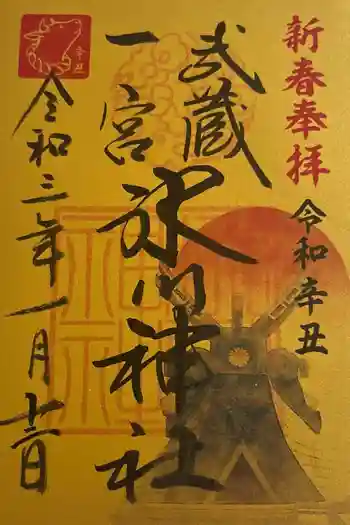 新春奉拝
令和辛丑
武蔵
一宮
氷川神社
令和三年一月十二日
辛丑